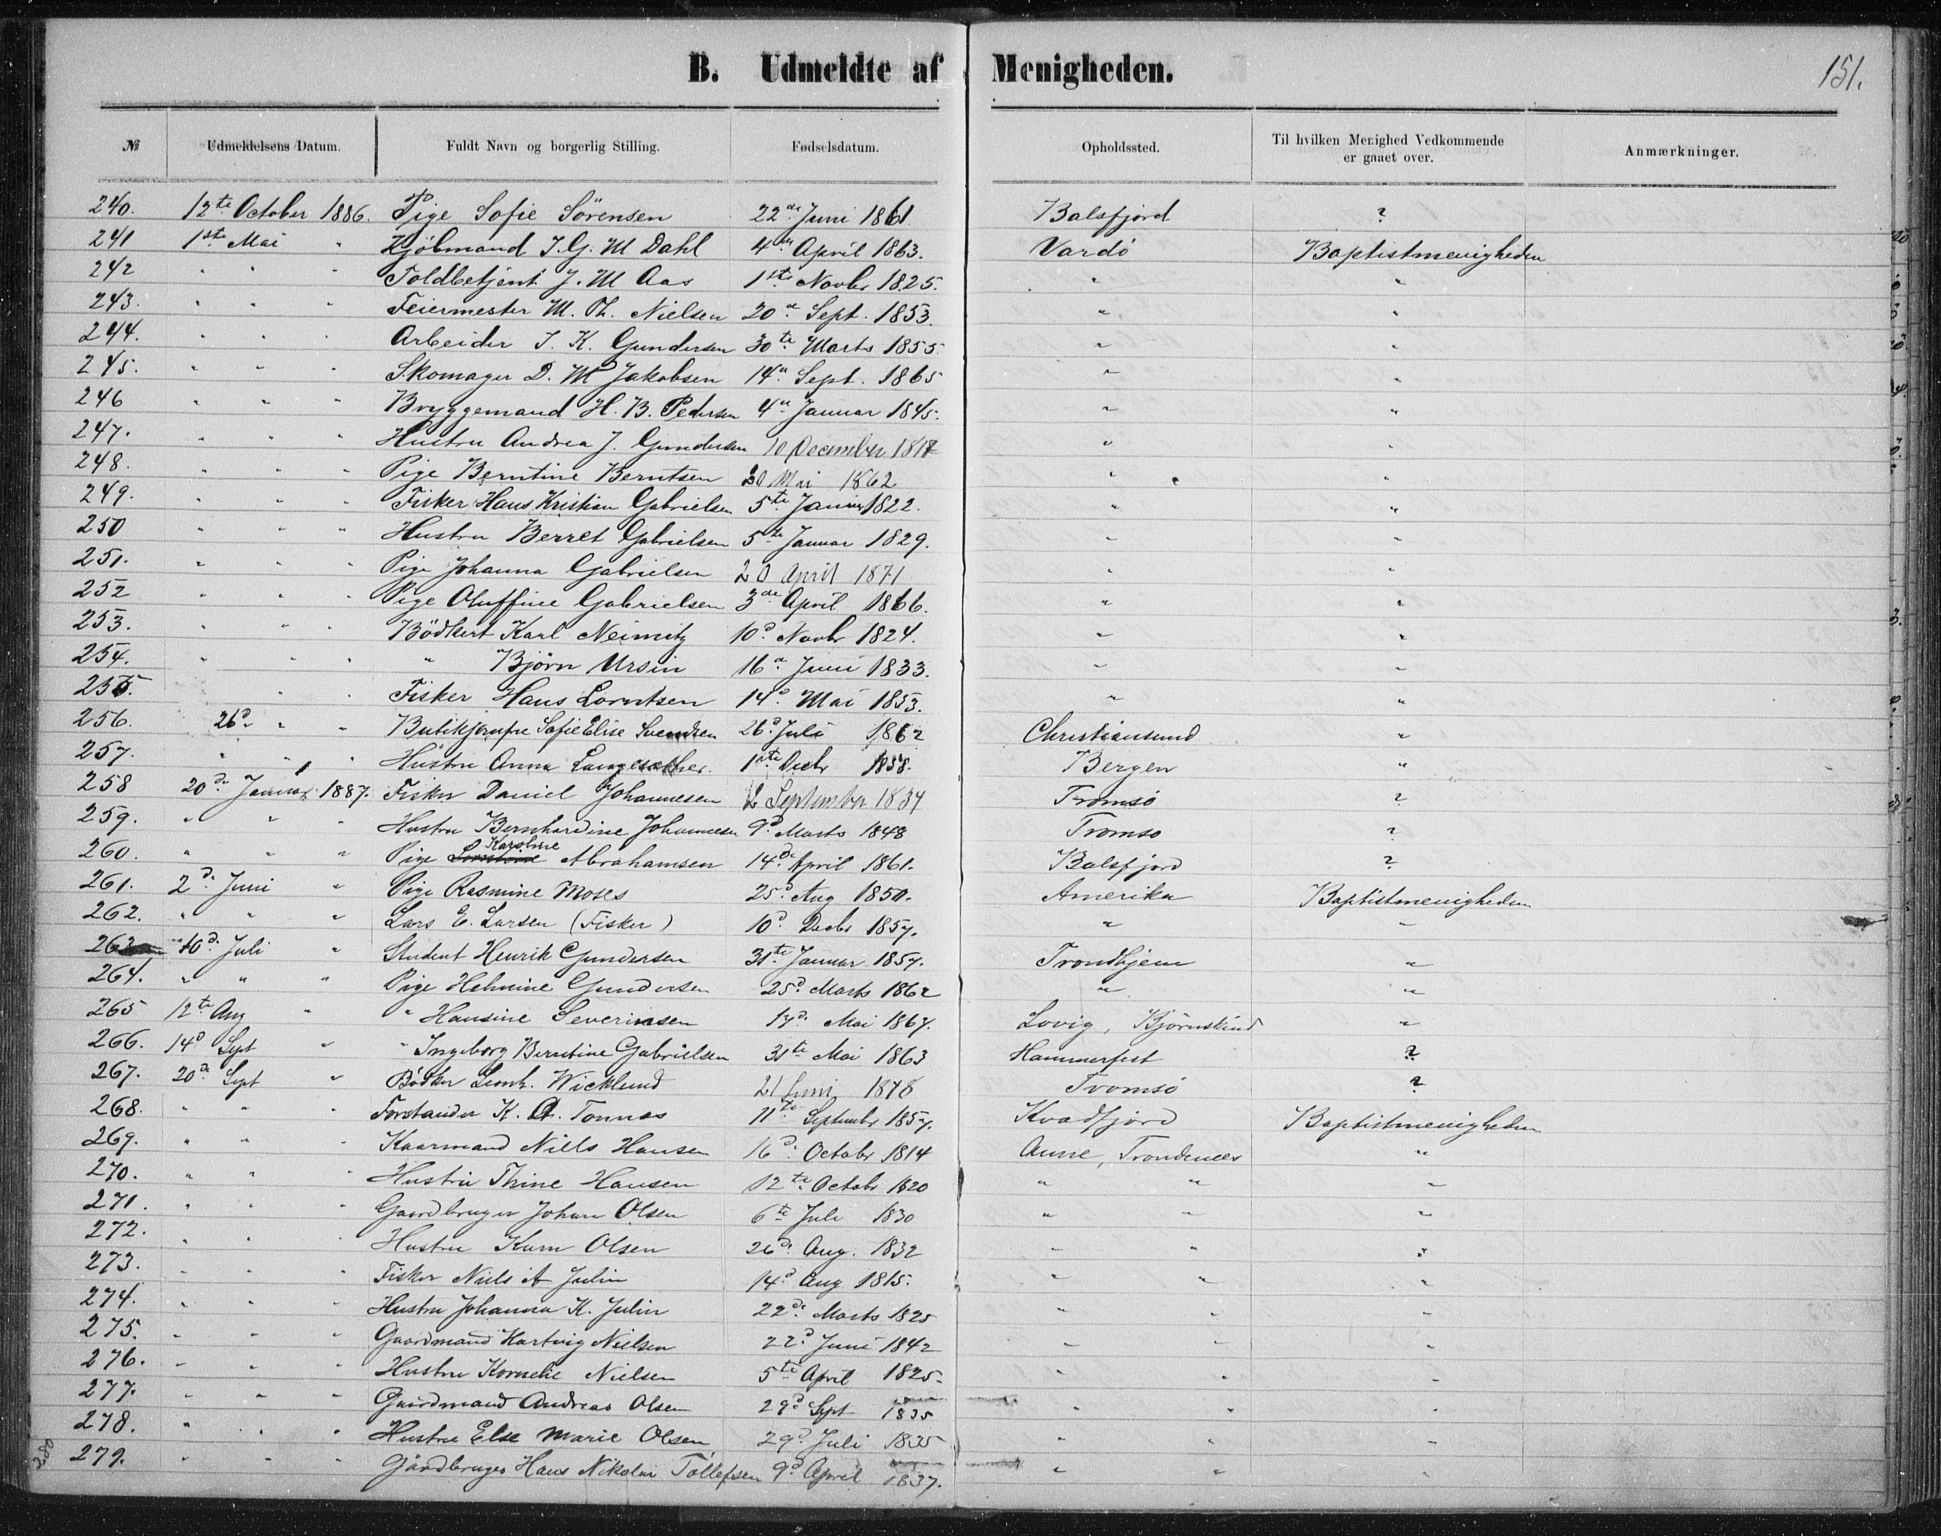 B. Udmeldte af Menigheden. 151.
№ Udmeldelsens Datum. Fuldt Navn og borgerlig Stilling. Fødselsdatum. Opholdssted. Til hvilken Menighed Vedkommende er gaaet over. Anmærkninger.
240. 12te October 1886. Pige Sofie Sørensen 22de Juni 1861 Balsfjord ?
241 1ste Mai " Kjøbmand J. G. M Dahl 4de April 1863. Vardö Baptistmenigheden
242 " " " Toldbetjent J. M Aas 1ste Novbr 1825. " "
243. " " " Feiermester M. Th. Nielsen 20de Sept. 1853. " "
244. " " " Arbeider J. K. Gundersen 30te Marts 1855. " "
245. " " " Skomager D. M Jakobsen 14de Sept. 1865 " "
246 " " " Bryggemand H. B. Pedersen 4de Januar 1845. " "
247. " " " Hustru Andrea J. Gundersen 10 December 1817 " "
248. " " " Pige Berntine Berntsen 20 Mai 1862 " "
249. " " " Fisker Hans Kristian Gabrielsen 5te Januar 1822. " "
250 " " " Hustru Berret Gabrielsen 5te Januar 1829. " "
251. " " " Pige Johanna Gabrielsen 20 April 1871 " "
252 " " " Pige Oluffine Gabrielsen 3de April 1866. " "
253. " " " Bödkert Karl Neimitz 10d Novbr 1824. " "
254. " " " " Bjørn Ursin 16d Juni 1833. " "
255. " " Fisker Hans Lorntsen 14d Mai 1853. " "
256. 26d " " Butikjomfru Sofie Elise Svendsen 26d Juli 1862 Christiansund "
257. " " " Hustru Anna Langesæther. 1ste Decbr 1858. Bergen "
258 20de Januar 1887. Fisker Daniel Johannesen 2 September 1834 Tromsö ?
259. " " " Hustru Bernhardine Johannesen 9d Marts 1848 Tromsö ?
260. " " " Pige Karoline Abrahamsen 14de April 1861. Balsfjord ?
261. 2d Juni " Pige Rasmine Moses 25d Aug 1850. Amerika Baptistmenigheden
262. " " " Lars E. Larsen (Fisker) 10d Decbr 1857. " "
263 10d Juli " Student Henrik Gundersen 31te Januar 1857. Trondhjem "
264. " " " Pige Helmine Gundersen 25d Marts 1862 " "
265 12te Aug " " Hansine Severinsen 17d. Mai 1867. Lovig, Bjørnskind "
266. 14d Sept " " Ingeborg Berntine Gabrielsen 31te Mai 1863 Hammerfest ?
267. 20de Sept " Bödker Leonh. Wicklund 21 Juni 1848 Tromsö ?
268. " " " Forstander K. A. Tonnas 11te Septembr 1857. Kvadfjord Baptistmenigheden
269. " " " Kaarmand Niels Hansen 16d October 1814 Aune, Trondenæs "
270. " " " Hustru Thine Hansen 12te Octobr 1820 " " "
271. " " " Gaardbruger Johan Olsen 6te Juli 1830 " " "
272. " " " Hustru Kum Olsen 26de Aug. 1832 " " "
273. " " " Fisker Niels A Julin 14d Aug 1815. " " "
274. " " " Hustru Johanna K. Julin 22de Marts 1825 " " "
275. " " " Gaardmand Hartvig Nielsen 22d Juni 1842 " " "
276. " " " Hustru Kornelie Nielsen 5te April 1825. " " "
277. " " " Gaardmand Andreas Olsen 29d Sept 1835 " " "
278. " " " Hustru Else Marie Olsen 29d Juli 1835 " " "
279. " " " Gaardbruger Hans Nikolai Tollefsen 9d April 1837. " " "
280